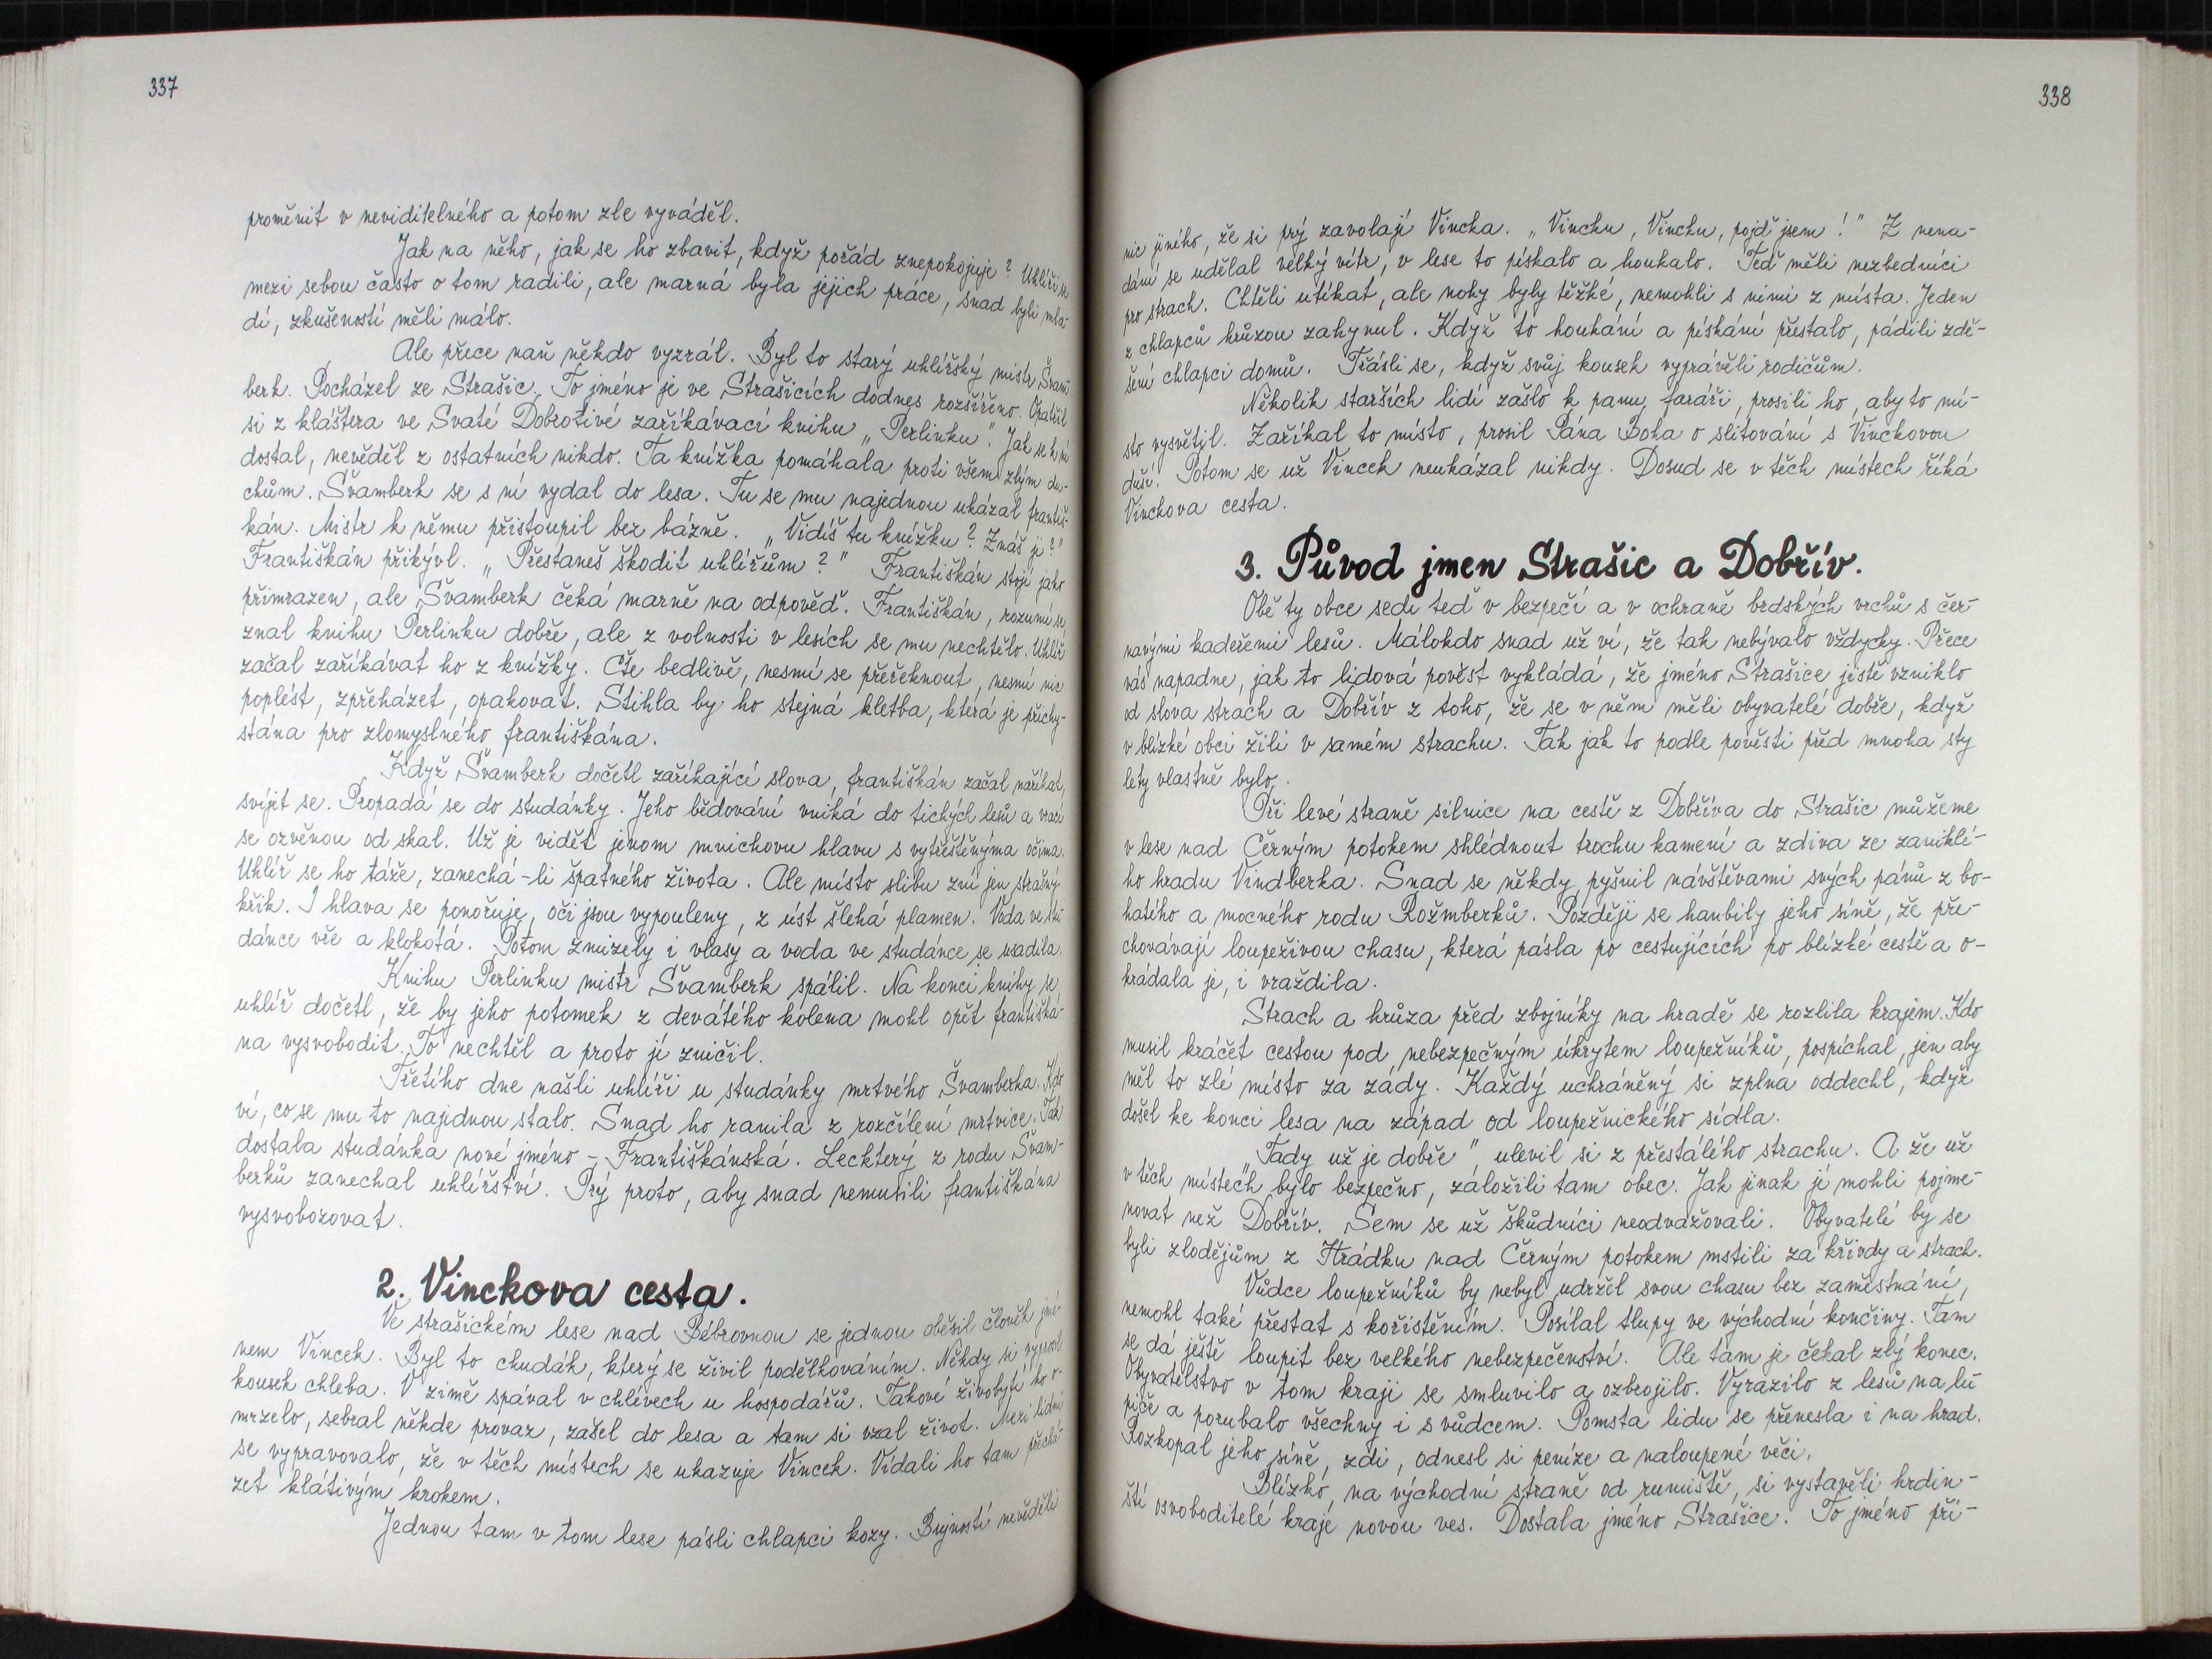 337
proměnit v neviditelného a potom zle vyváděl.
Jak na něho, jak se ho zbavit, když pořád znepokojuje? Uhlíři se
mezi sebou často o tom radili, ale marná byla jejich práce, snad byli mla-
dí, zkušeností měli málo.
Ale přece naň někdo vyzrál. Byl to starý uhlířský mistr Švam-
berk. Pocházel ze Strašic. To jméno je ve Strašicích dodnes rozšířeno. Opatřil
si z kláštera ve Svaté Dobrotivé zaříkávací knihu „Perlinku". Jak se k ní
dostal, nevěděl z ostatních nikdo. Ta knížka pomáhala proti všem zlým du-
chům. Švamberk se s ní vydal do lesa. Tu se mu najednou ukázal františ-
kán. Mistr k němu přistoupil bez bázně. „Vidíš tu knížku? Znáš ji?"
Františkán přikývl. „Přestaneš škodit uhlířům?" Františkán stojí jako
přimrazen, ale Švamberk čeká marně na odpověď. Františkán, rozumí se
znal knihu Perlinku dobře, ale z volnosti v lesích se mu nechtělo. Uhlíř
začal zaříkávat ho z knížky. Čte bedlivě, nesmí se přeřeknout, nesmí nic
poplést, zpřeházet, opakovat. Stihla by ho stejná kletba, která je přichy-
stána pro zlomyslného františkána.
Když Švamberk dočetl zaříkající slova, františkán začal naříkat,
svíjet se. Propadá se do studánky. Jeho bědování vniká do tichých lesů a vrací
se ozvěnou od skal. Už je vidět jenom mnichovu hlavu s vytřeštěnýma očima.
Uhlíř se ho táže, zanechá-li špatného života. Ale místo slibu zní jen strašný
křik. I hlava se ponořuje, oči jsou vypouleny, z úst šlehá plamen. Voda ve stu
dánce vře a klokotá. Potom zmizely i vlasy a voda ve studánce se usadila.
Knihu Perlinku mistr Švamberk spálil. Na konci knihy se
uhlíř dočetl, že by jeho potomek z devátého kolena mohl opět františká-
na vysvobodit. To nechtěl a proto ji zničil.
Třetího dne našli uhlíři u studánky mrtvého Švamberka. Kdo
ví, co se mu to najidnou stalo. Snad ho ranila z rozčílení mrtvice. Tak
dostala studánka nové jméno - Františkánská. Leckterý z rodu Švam-
berků zanechal uhlířství. Prý proto, aby snad nemusili františkána
vysvobozovat.
2. Vinckova cesta.
Ve strašickém lese nad Bébrovnou se jednou oběsil člověk jmé-
nem Vincek. Byl to chudák, který se živil podělkováním. Někdy si vyprosil
kousek chleba. V zimě spával v chlévech u hospodářů. Takové živobytí ho o-
mrzelo, sebral někde provaz, zašel do lesa a tam si vzal život. Mezi lidmi
se vypravovalo, že v těch místech se ukazuje Vincek. Vídali ho tam přechá-
zet klátivým krokem.
Jednou tam v tom lese pásli chlapci kozy. Bujností nevěděli
338
nic jiného, že si prý zavolají Vincka. „Vincku, Vincku, pojď jsem!" Z nena-
dání se udělal velký vítr, v lese to pískalo a houkalo. Teď měli nezbedníci
pro strach. Chtěli utíkat, ale nohy byly těžké, nemohli s nimi z místa. Jeden
z chlapců hrůzou zahynul. Když to houkání a pískání přestalo, pádili zdě-
šení chlapci domů. Třásli se, když svůj kousek vyprávěli rodičům.
Několik starších lidí zašlo k panu faráři, prosili ho, aby to mí-
sto vysvětil. Zaříkal to místo, prosil Pána Boha o slitování s Vinckovou
duší. Potom se už Vincek neukázal nikdy. Dosud se v těch místech říká
Vinckova cesta.
3. Původ jmen Strašic a Dobřív.
Obě ty obce sedí teď v bezpečí a v ochraně brdských vrchů s čer-
navými kadeřemi lesů. Málokdo snad už ví, že tak nebývalo vždycky. Přece
vás napadne, jak to lidová pověst vykládá, že jméno Strašice jistě vzniklo
od slova strach a Dobřív z toho, že se v něm měli obyvatelé dobře, když
v blízké obci žili v samém strachu. Tak jak to podle pověsti před mnoha sty
lety vlastně bylo.
Při levé straně silnice na cestě z Dobříva do Strašic můžeme
v lese nad Černým potokem shlédnout trochu kamení a zdiva ze zaniklé-
ho hradu Vindberka. Snad se někdy pyšnil návštěvami svých pánů z bo-
hatého a mocného rodu Rožmberků. Později se hanbily jeho síně, že pře-
chovávají loupeživou chasu, která pásla po cestujících po blízké cestě a o-
krádala je, i vraždila.
Strach a hrůza před zbojníky na hradě se rozlila krajem. Kdo
musil kráčet cestou pod nebezpečným úkrytem loupežníků, pospíchal, jen aby
měl to zlé místo za zády. Každý uchráněný si zplna oddechl, když
došel ke konci lesa na západ od loupežnického sídla.
„Tady už je dobře" ulevil si z přestálého strachu. A že už
v těch místech bylo bezpečno, založili tam obec. Jak jinak ji mohli pojme-
novat než Dobřív. Sem se už škůdníci neodvažovali. Obyvatelé by se
byli zlodějům z Hrádku nad Černým potokem mstili za křivdy a strach.
Vůdce loupežníků by nebyl udržel svou chasu bez zaměstnání,
nemohl také přestat s kořistěním. Posílal tlupy ve východní končiny. Tam
se dá ještě loupit bez velkého nebezpečenství. Ale tam je čekal zlý konec.
Obyvatelstvo v tom kraji se smluvilo a ozbrojilo. Vyrazilo z lesů na lu
piče a porubalo všechny i s vůdcem. Pomsta lidu se přenesla i na hrad.
Rozkopal jeho síně, zdi, odnesl si peníze a naloupené věci.
Blízko, na východní straně od rumiště, si vystavěli hrdin-
ští osvoboditelé kraje novou ves. Dostala jméno Strašice. To jméno při-